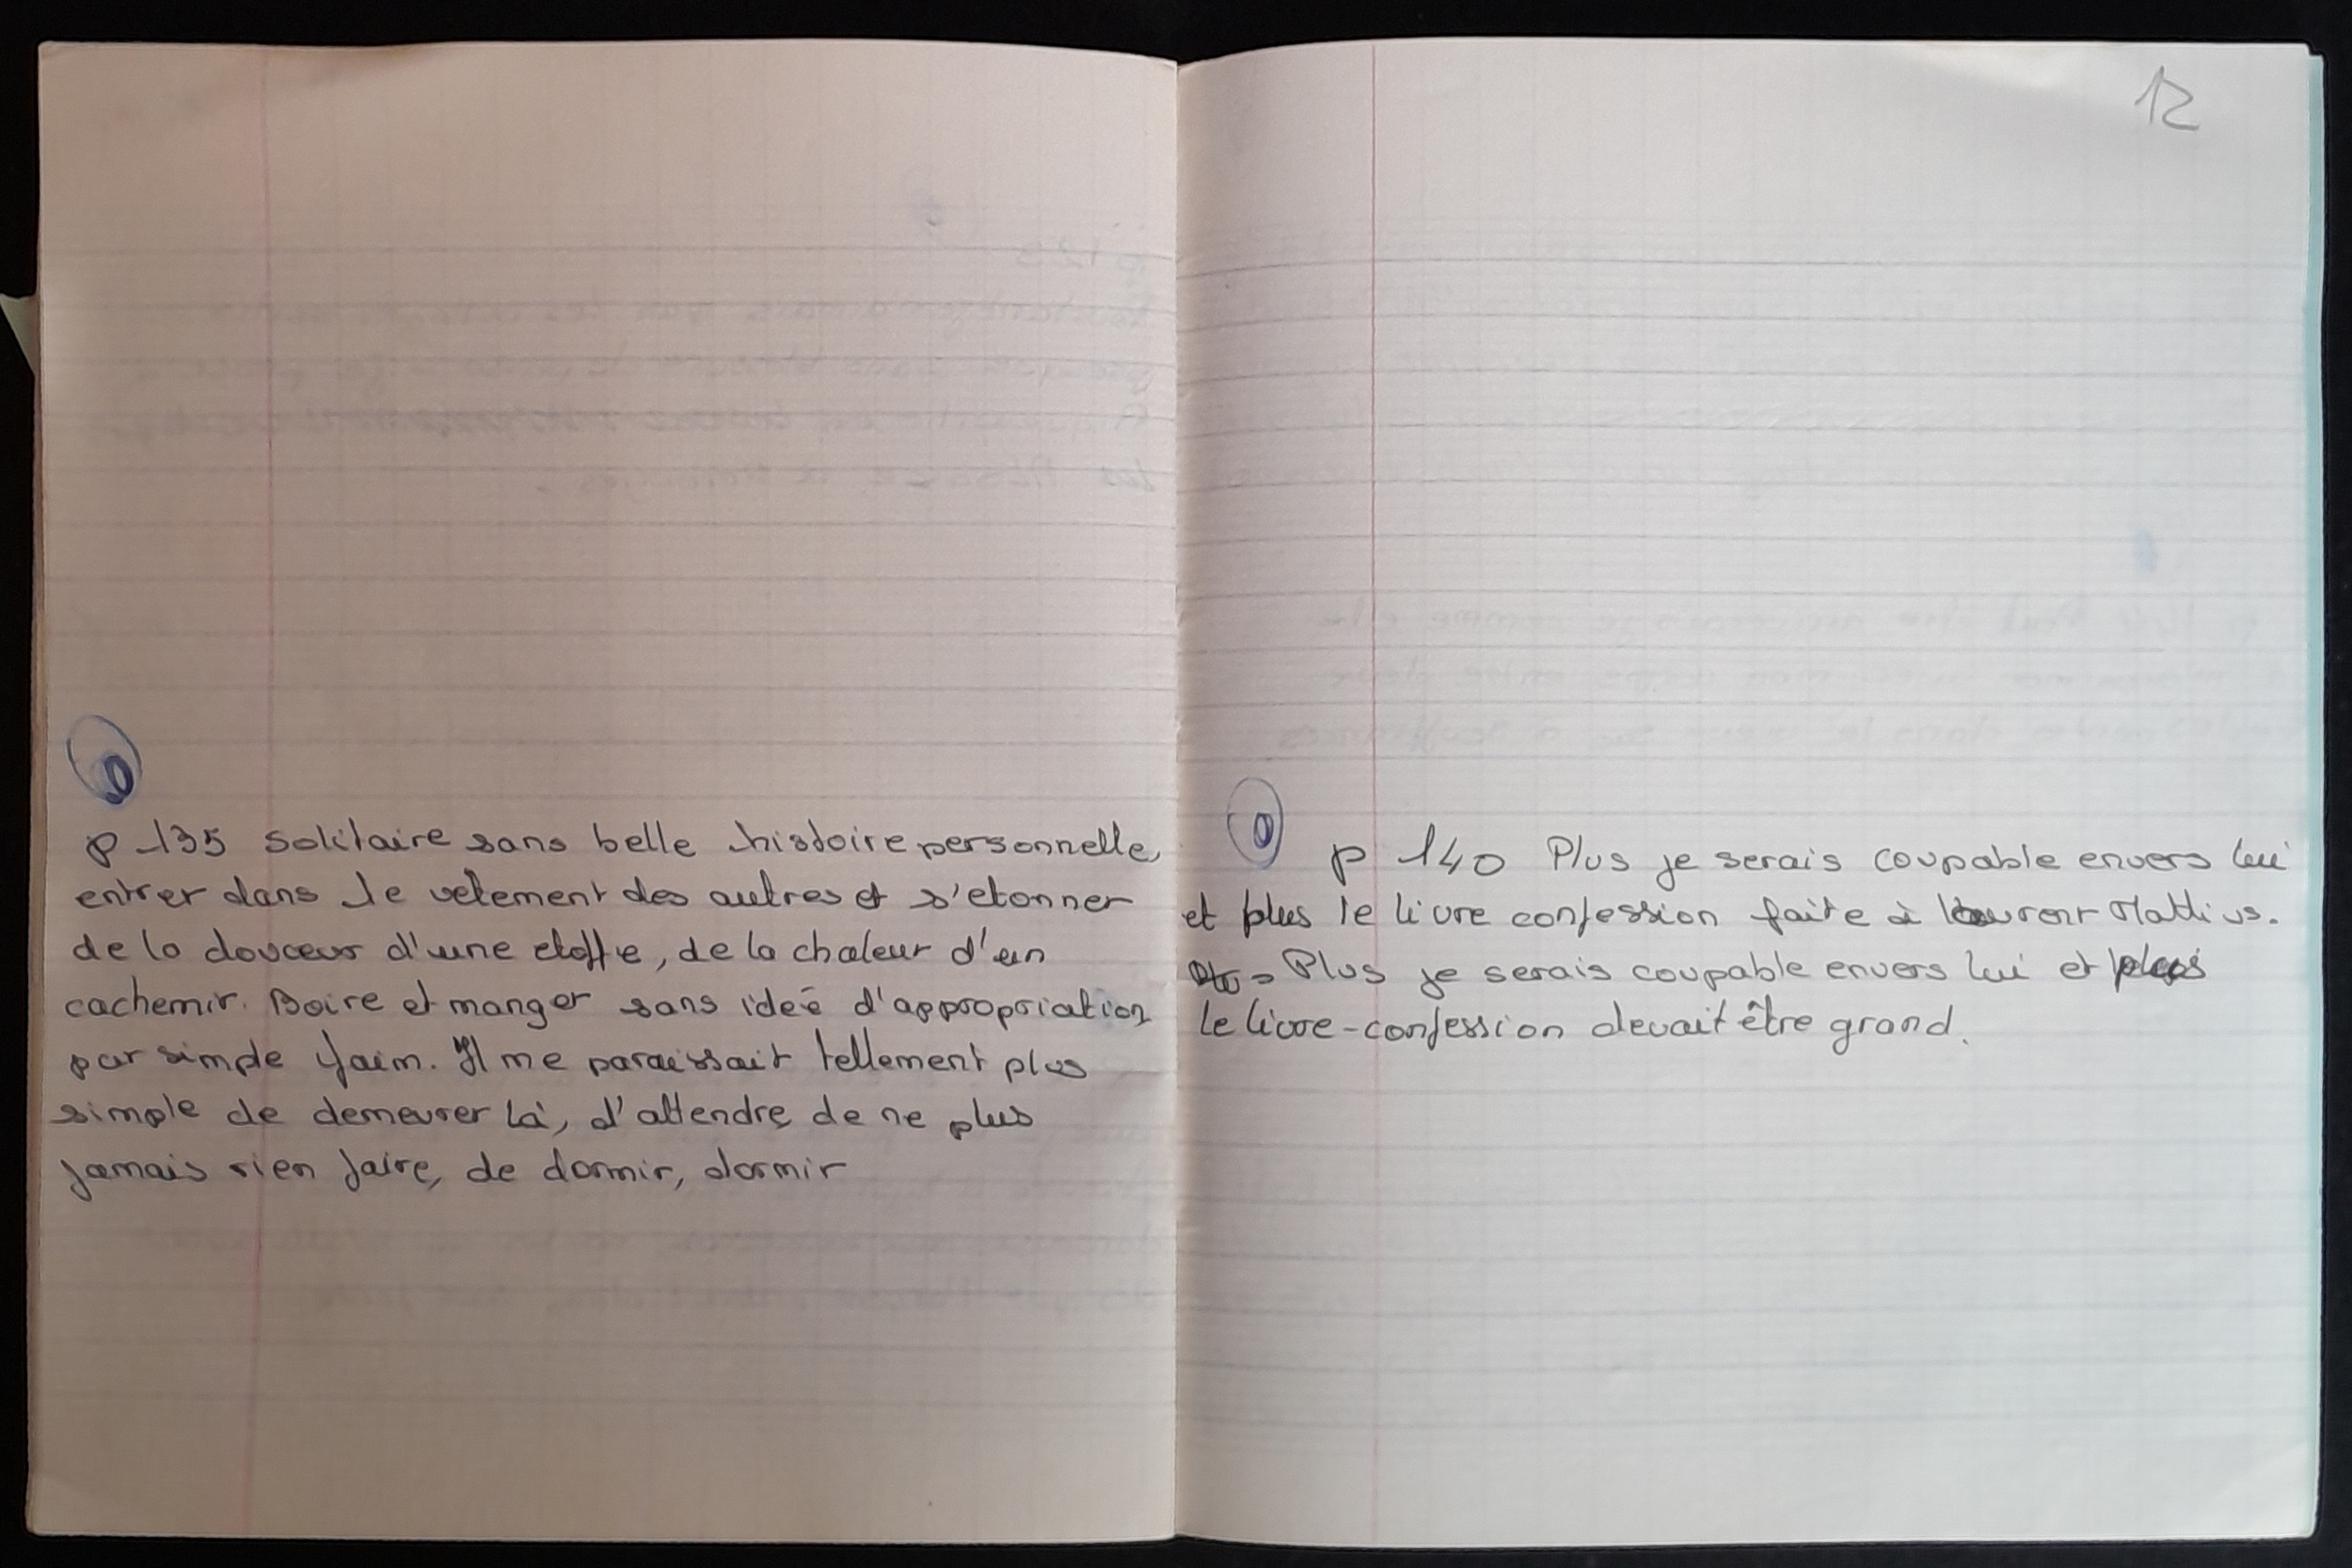 p 135 Solitaire sans belle histoire personnelle,
entrer dans le vetement des autres et s'etonner
de la douceur d'une etoffe, de la chaleur d'un
cachemir. Boire et manger sans ideé d'appropriation
par simple faim. Il me paraissait tellement plus
simple de demeurer là, d'attendre de ne plus
jamais rien faire, de dormir, dormir
12
p 140 Plus je serais coupable envers lui
et plus le livre confession faite à Mattius.
Plus je serais coupable envers lui et plus
le livre-confession devait être grand.